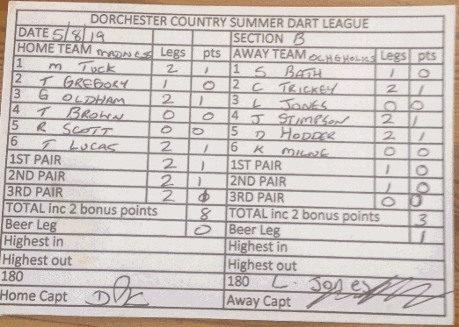 DORCHESTER COUNTRY SUMMER DART LEAGUE
DATE 5/8/19 SECTION B
HOME TEAM MADNESS Legs pts AWAY TEAM OCHEHOLICS Legs pts
1 M TUCK 2 1 1 S BATH 1 0
2 T GREGORY 1 0 2 C TRICKEY 2 1
3 G OLDHAM 2 1 3 L JONES 0 0
4 T BROWN 0 0 4 J STIMPSON 2 1
5 R SCOTT 0 0 5 D HODDER 2 1
6 T LUCAS 2 1 6 K MILNE 0 0
1ST PAIR 2 1 1ST PAIR 1 0
2ND PAIR 2 1 2ND PAIR 1 0
3RD PAIR 2 3RD PAIR 0 0
TOTAL inc 2 bonus points 8 TOTAL inc 2 bonus points 3
Beer Leg 0 Beer Leg 1
Highest in Highest in
Highest out Highest out
180 180 L. Jones
Home Capt Away Capt